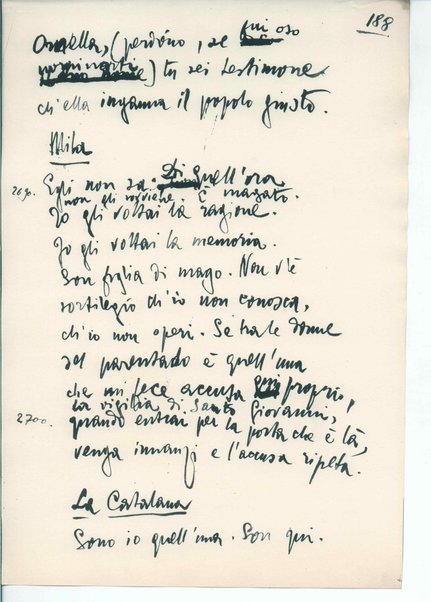 188
Ornella, (perdóno, se qui oso
nominarti) tu sei testimone
ch'ella inganna il popolo giusto.
Mila
Egli non sa. Di quell'ora
non gli sovviene. È magato.
2690.
Io gli voltai la ragione.
Io gli voltai la memoria.
Son figlia di mago. Non v'è
sortilegio ch'io non conosca,
ch'io non operi. Se tra le donne
del parentado è quell'una
che mi fece accusa qui proprio,
la vigilia di Santo Giovanni,
2700.
quando entrai per la porta che è là,
venga innanzi e l'accusa ripeta.
La Catalana
Sono io quell'una. Son qui.